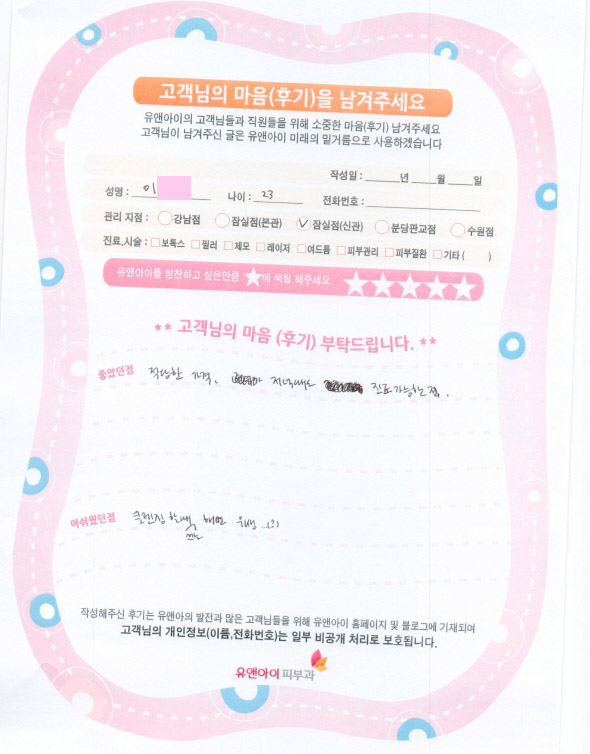 고객님의 마음(후기)을 남겨주세요
유앤아이의 고객님들과 직원들을 위해 소중한 마음(후기) 남겨주세요
고객님이 남겨주신 글은 유앤아이 미래의 밑거름으로 사용하겠습니다
작성일 : 년 월 일
성명 : 이 나이 : 23 전화번호 :
관리 지점 : 강남점 잠실점(본관) 잠실점(신관) 분당판교점 수원점
진료,시술 : 보톡스 필러 제모 레이저 여드름 피부관리 피부질환 기타 ( )
유앤아이를 칭찬하고 싶은만큼 ★에 색칠 해주세요. ★★★★★
** 고객님의 마음 (후기) 부탁드립니다. **
좋았던점 적당한 가격, 저녁에도 진료가능한점.
아쉬웠던점 클렌징 할때 쓰는 해면 위생..(?)
작성해주신 후기는 유앤아의 발전과 많은 고객님들을 위해 유앤아이 홈페이지 및 블로그에 기재되며
고객님의 개인정보(이름,전화번호)는 일부 비공개 처리로 보호됩니다.
유앤아이 피부과